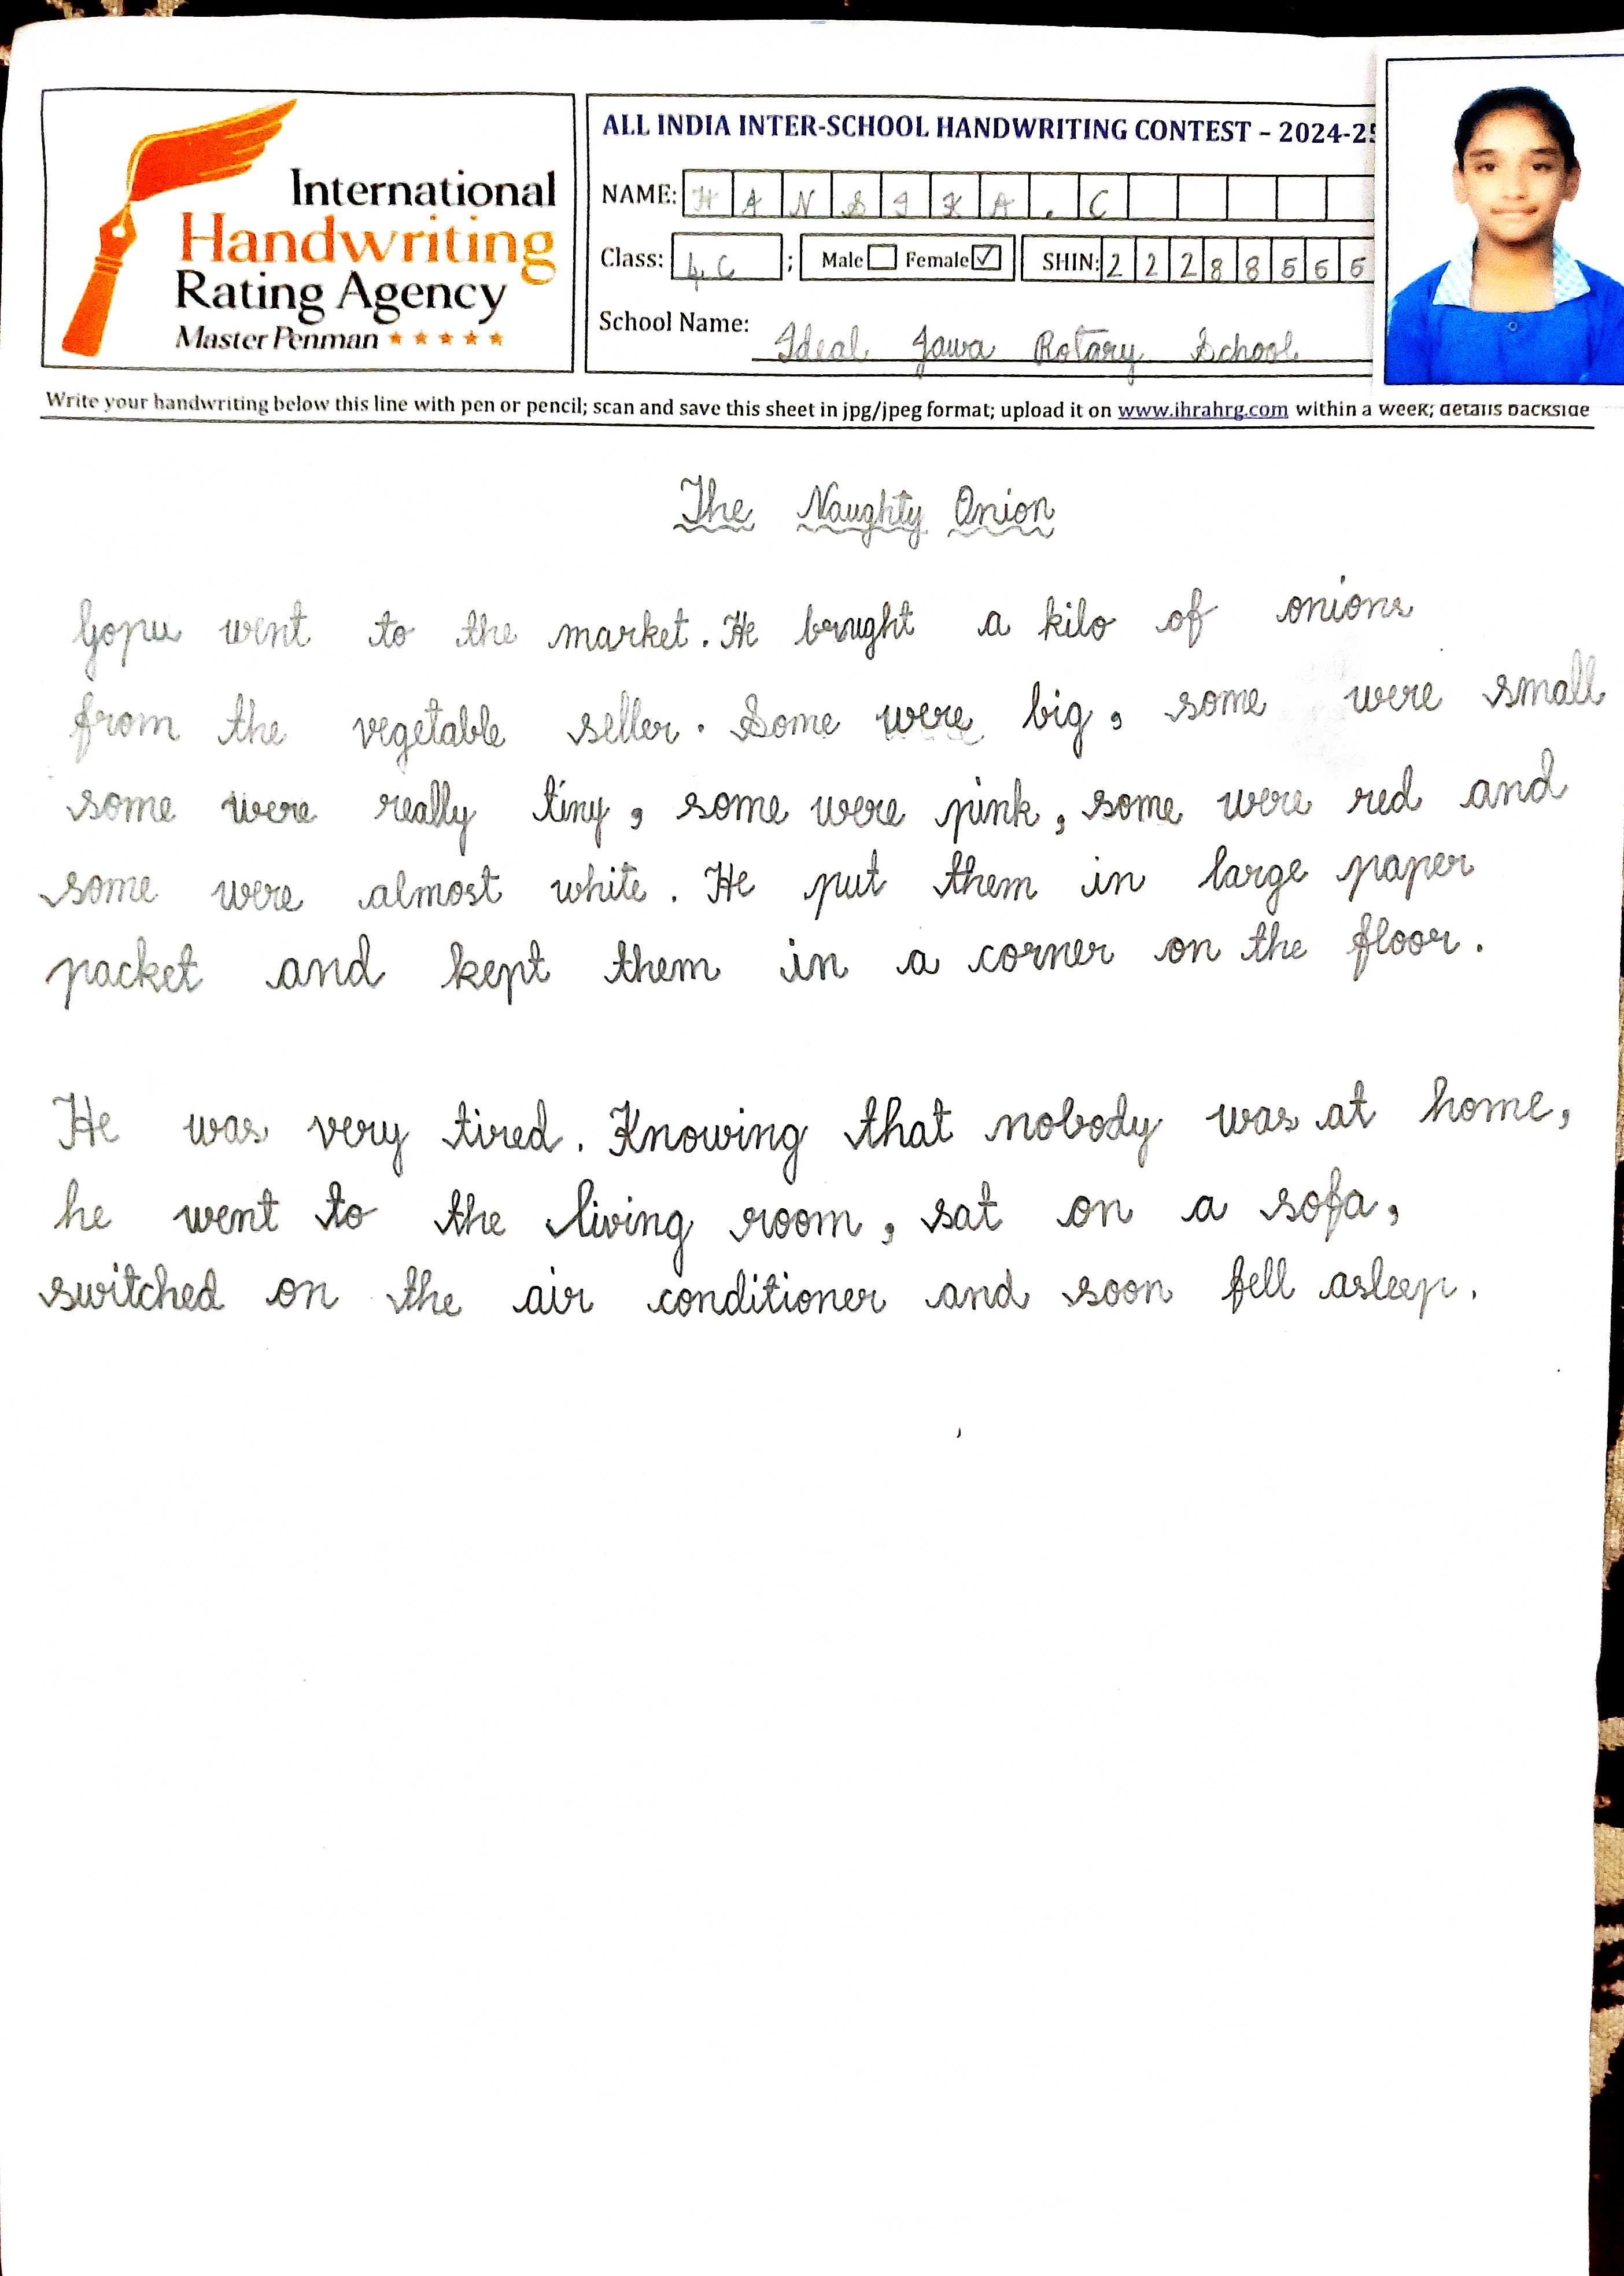 International
Handwriting
Rating Agency
Master Penman
ALL INDIA INTER-SCHOOL HANDWRITING CONTEST – 2024-25
NAME: HANSIKA. C
Class: 4 C ; Male Female SHIN: 2 2 2 8 8
School Name: Ideal Jawa Rotary School
Write your handwriting below this line with pen or pencil; scan and save this sheet in jpg/jpeg format; upload it on www.ihrahrg.com within a week; details backside
The Naughty Onion
Gopu went to the market. He bought a kilo of onions
from the vegetable seller. Some were big, some were small
some were really tiny, some were pink, some were red and
some were almost white. He put them in large paper
packet and kept them in a corner on the floor.
He was very tired. Knowing that nobody was at home,
he went to the living room, sat on a sofa,
switched on the air conditioner and soon fell asleep.